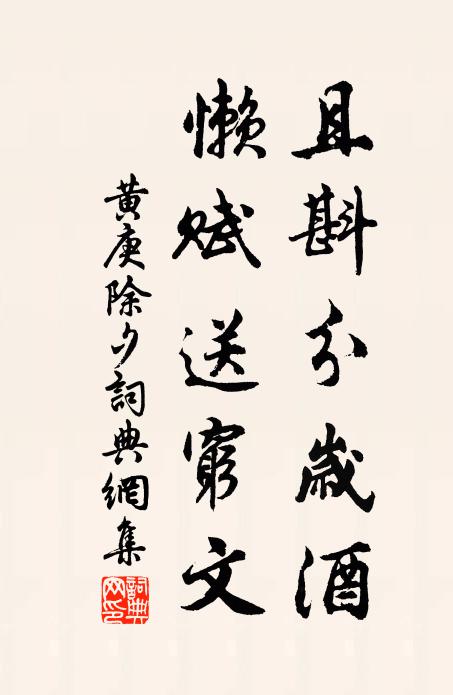 且斟分歲酒
懶賦送窮文
黃庚除夕詞典網集
詞典網印